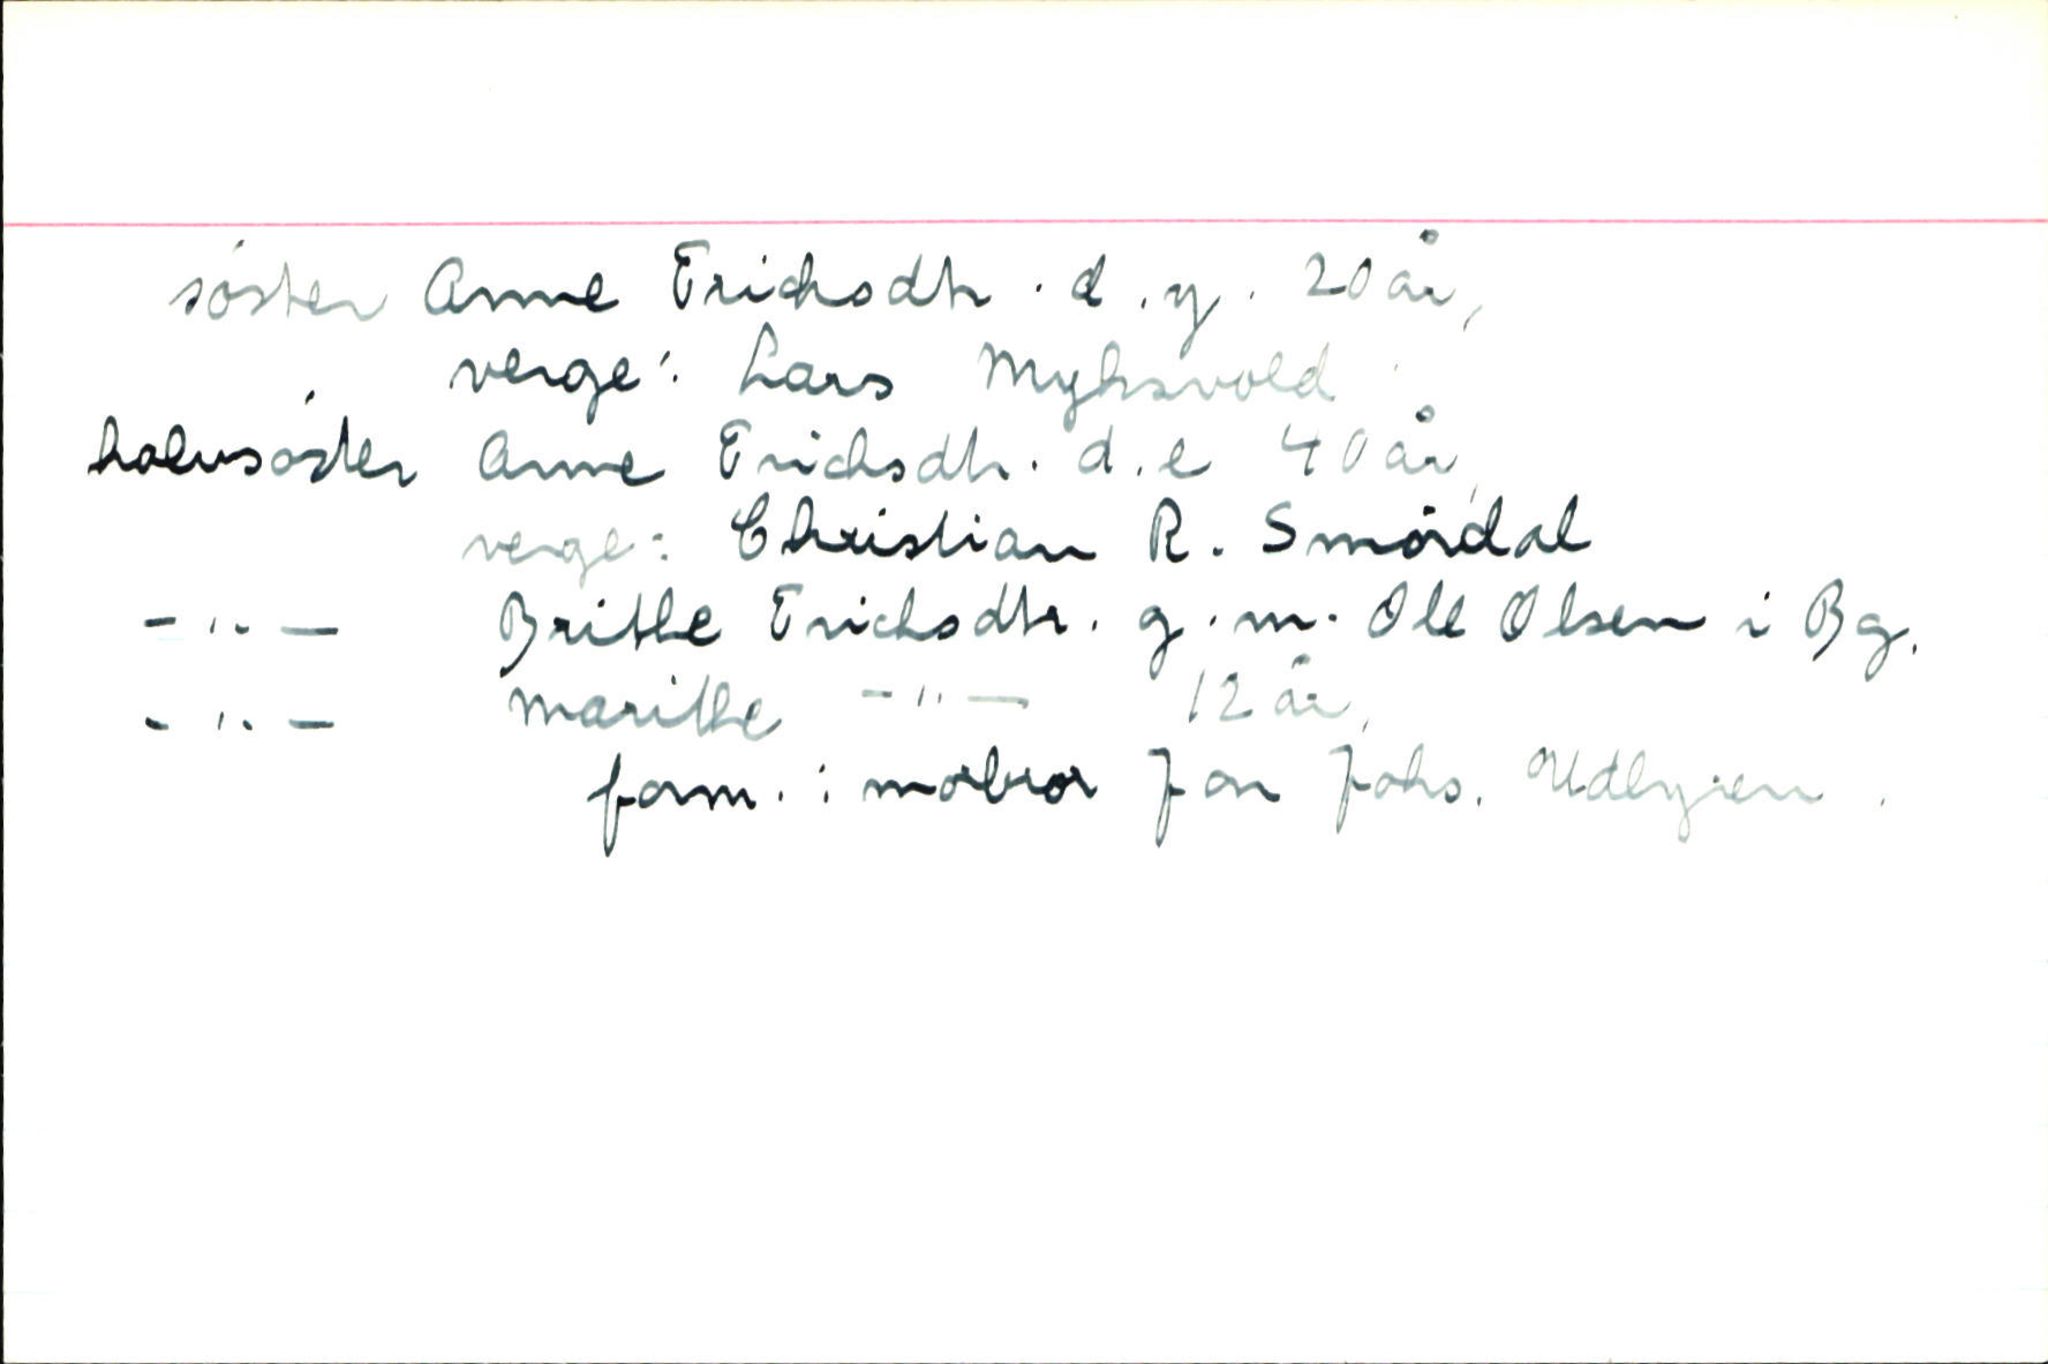 søster Anne Erichsdtr. d.y. 20 år,
verge: Lars Myksvold
halvsøster Anne Erichsdtr. d.e 40 år,
verge: Christian R. Smørdal
- " - Brithe Erichsdtr. g.m. Ole Olsen i Bg.
- " - Marithe - " - 12 år,
form.: morbror Jon Johs. Udlgien.